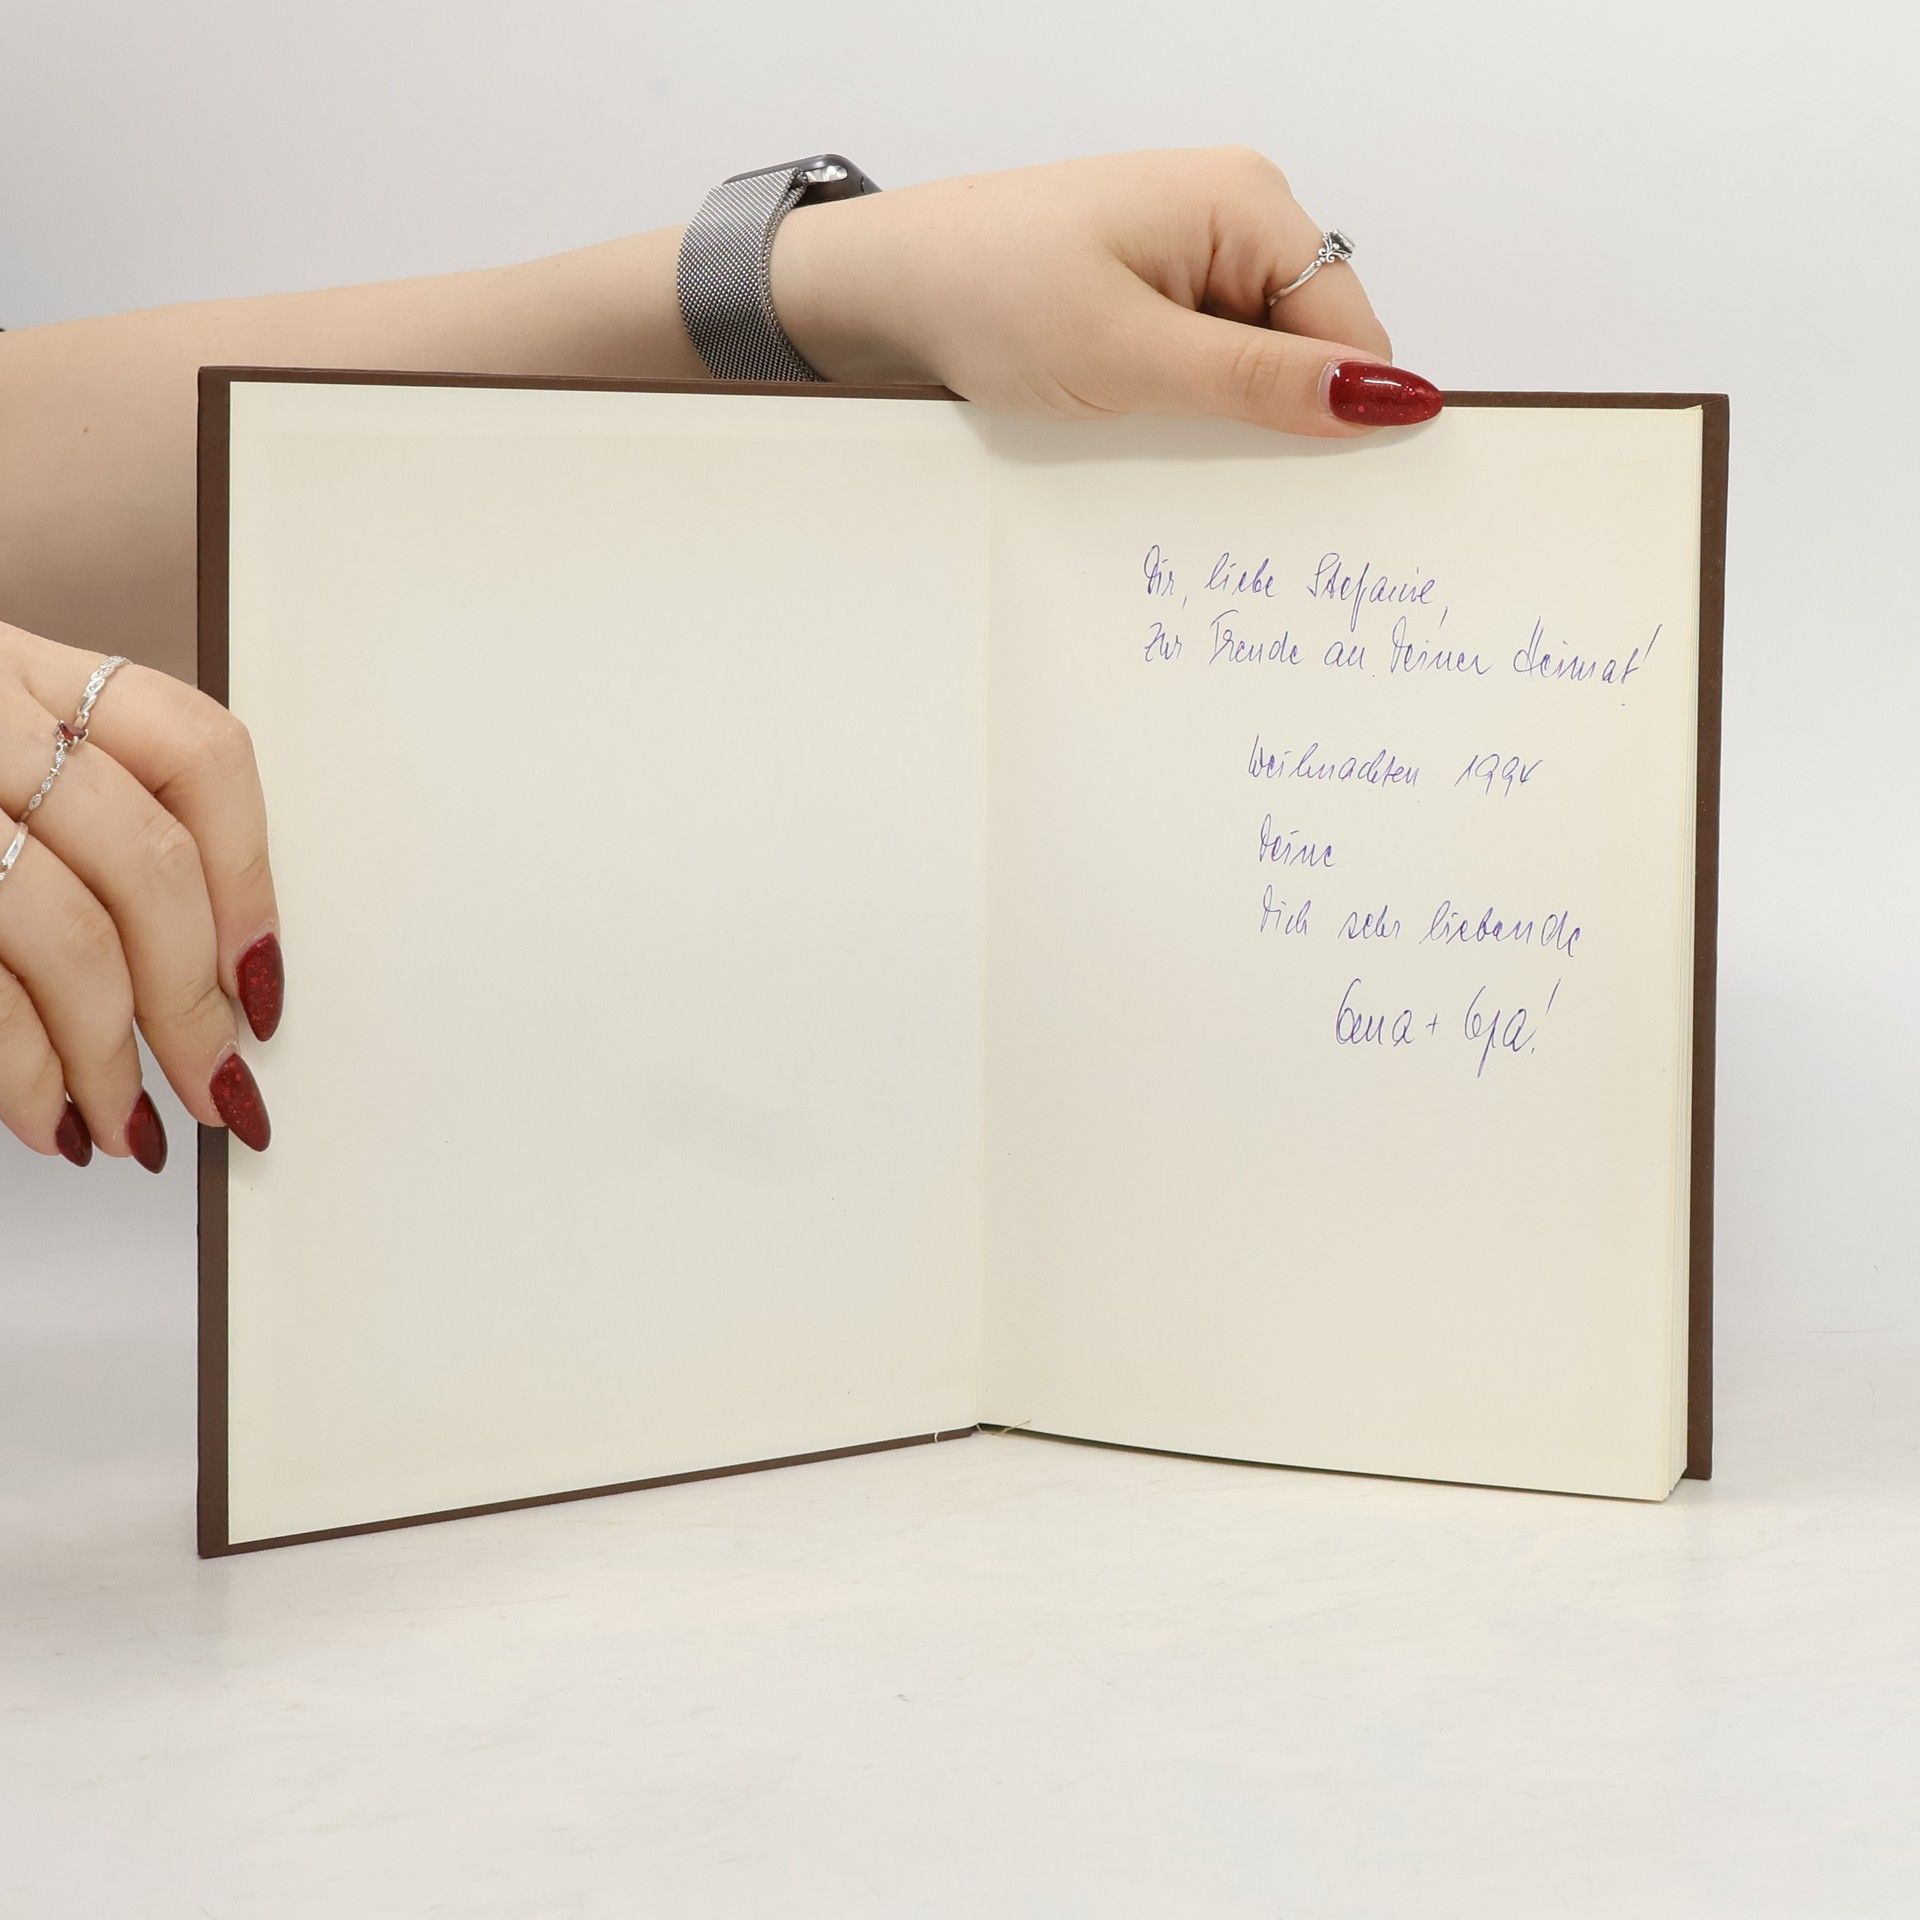 Dir, liebe Stefanie,
zur Freude an Deiner Heimat!
Weihnachten 1994
Deine
Dich sehr liebende
Oma + Opa!